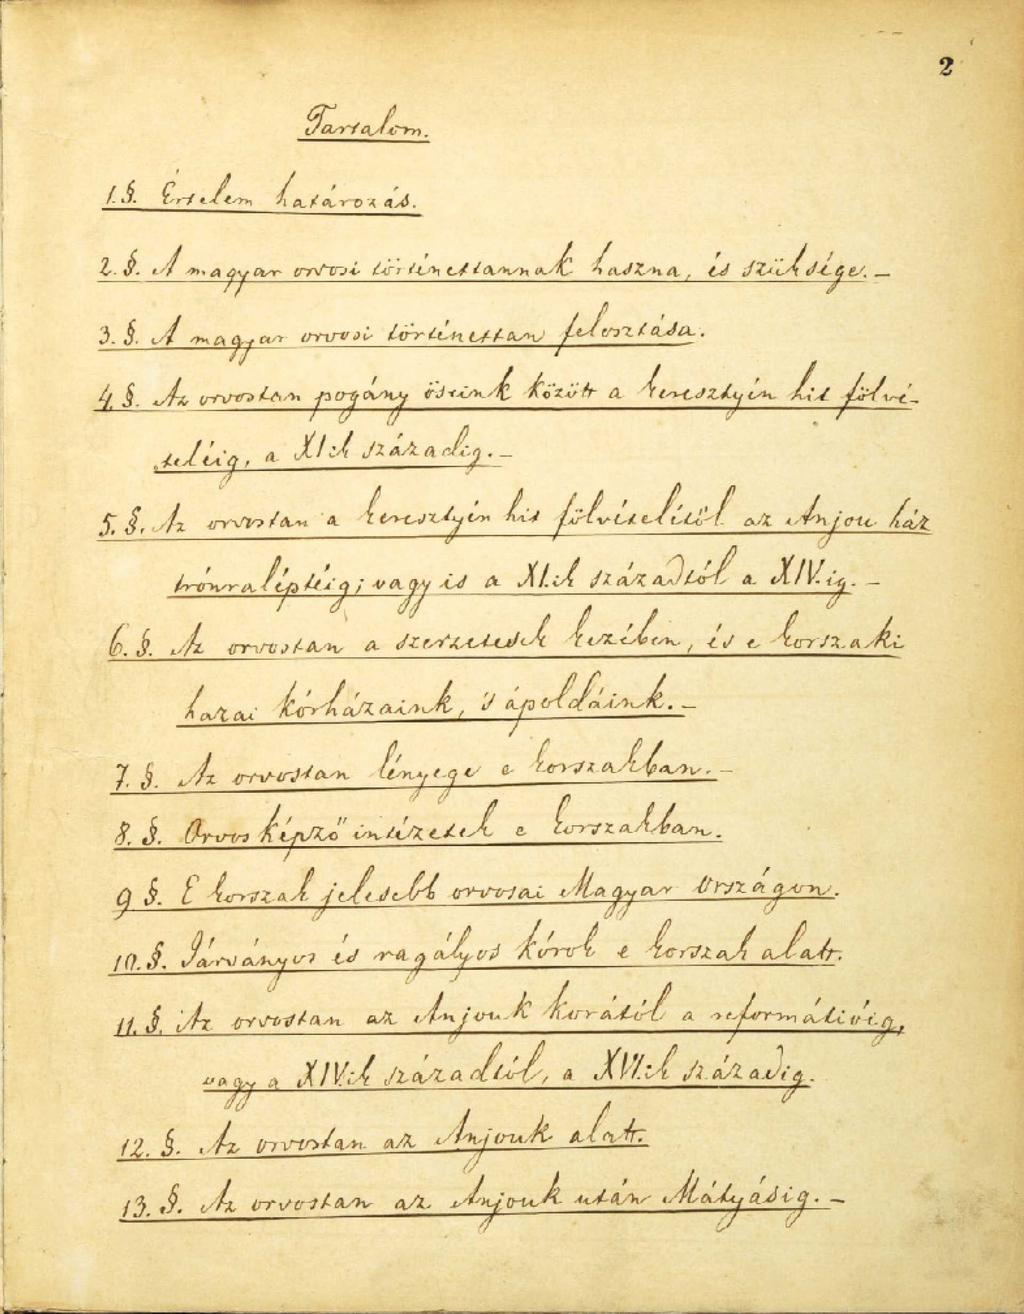 2
Tartalom.
1. §. Értelem határozás.
2. §. A magyar orvosi történettannak haszna, és szüksége. –
3. §. A magyar orvosi történettan felosztása.
4. §. Az orvostan pogány őseink között a keresztyén hit fölvé-
teléig, a XI:ik századig. –
5. §. Az orvostan a keresztyén hit fölvételétől az Anjou ház
trónraléptéig; vagy is a XI.ik századtól a XIV.ig. –
6. §. Az orvostan a szerzetesek kezében, és e korszaki
hazai kórházaink, 's ápoldáink. –
7. §. Az orvostan lényege e korszakban. –
8. §. Orvos képző intézetek e korszakban.
9 §. E korszak jelesebb orvosai Magyar országon.
10. §. Járványos és ragályos kórok e korszak alatt.
11. §. Az orvostan az Anjouk korától a reformátióig,
vagy a XIV:ik századtól, a XVI:ik századig.
12. §. Az orvostan az Anjouk alatt.
13. §. Az orvostan az Anjouk után Mátyásig. –